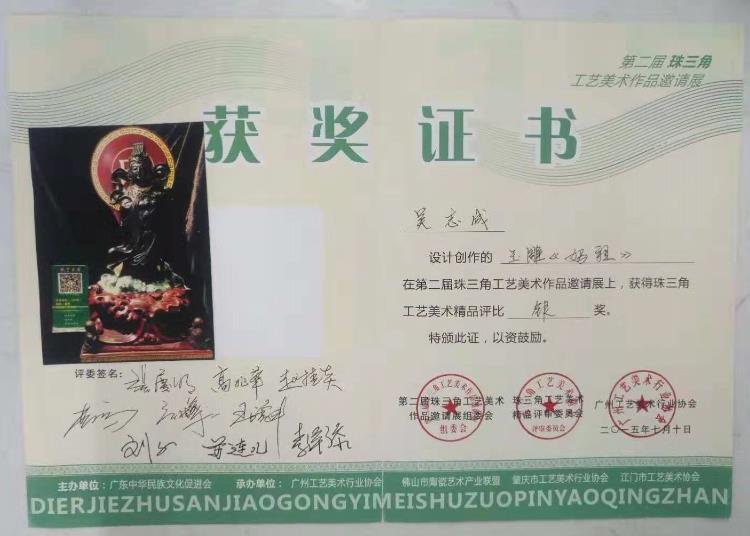 第二届 珠三角
工艺美术作品邀请展
获奖证书
吴志成
设计创作的 玉雕《妈祖》
在第二届珠三角工艺美术作品邀请展上，获得珠三角
工艺美术精品评比 银 奖。
特颁此证，以资鼓励。
评委签名：
第二届珠三角工艺美术
作品邀请展组委会
组委会
珠三角工艺美术
精品评审委员会
评审委员会
广州工艺美术行业协会
二〇一五年七月十日
主办单位：广东中华民族文化促进会 承办单位：广州工艺美术行业协会 佛山市陶瓷艺术产业联盟 肇庆市工艺美术行业协会 江门市工艺美术协会
DIERJIEZHUSANJIAOGONGYIMEISHUZUOPINYAOQINGZHAN